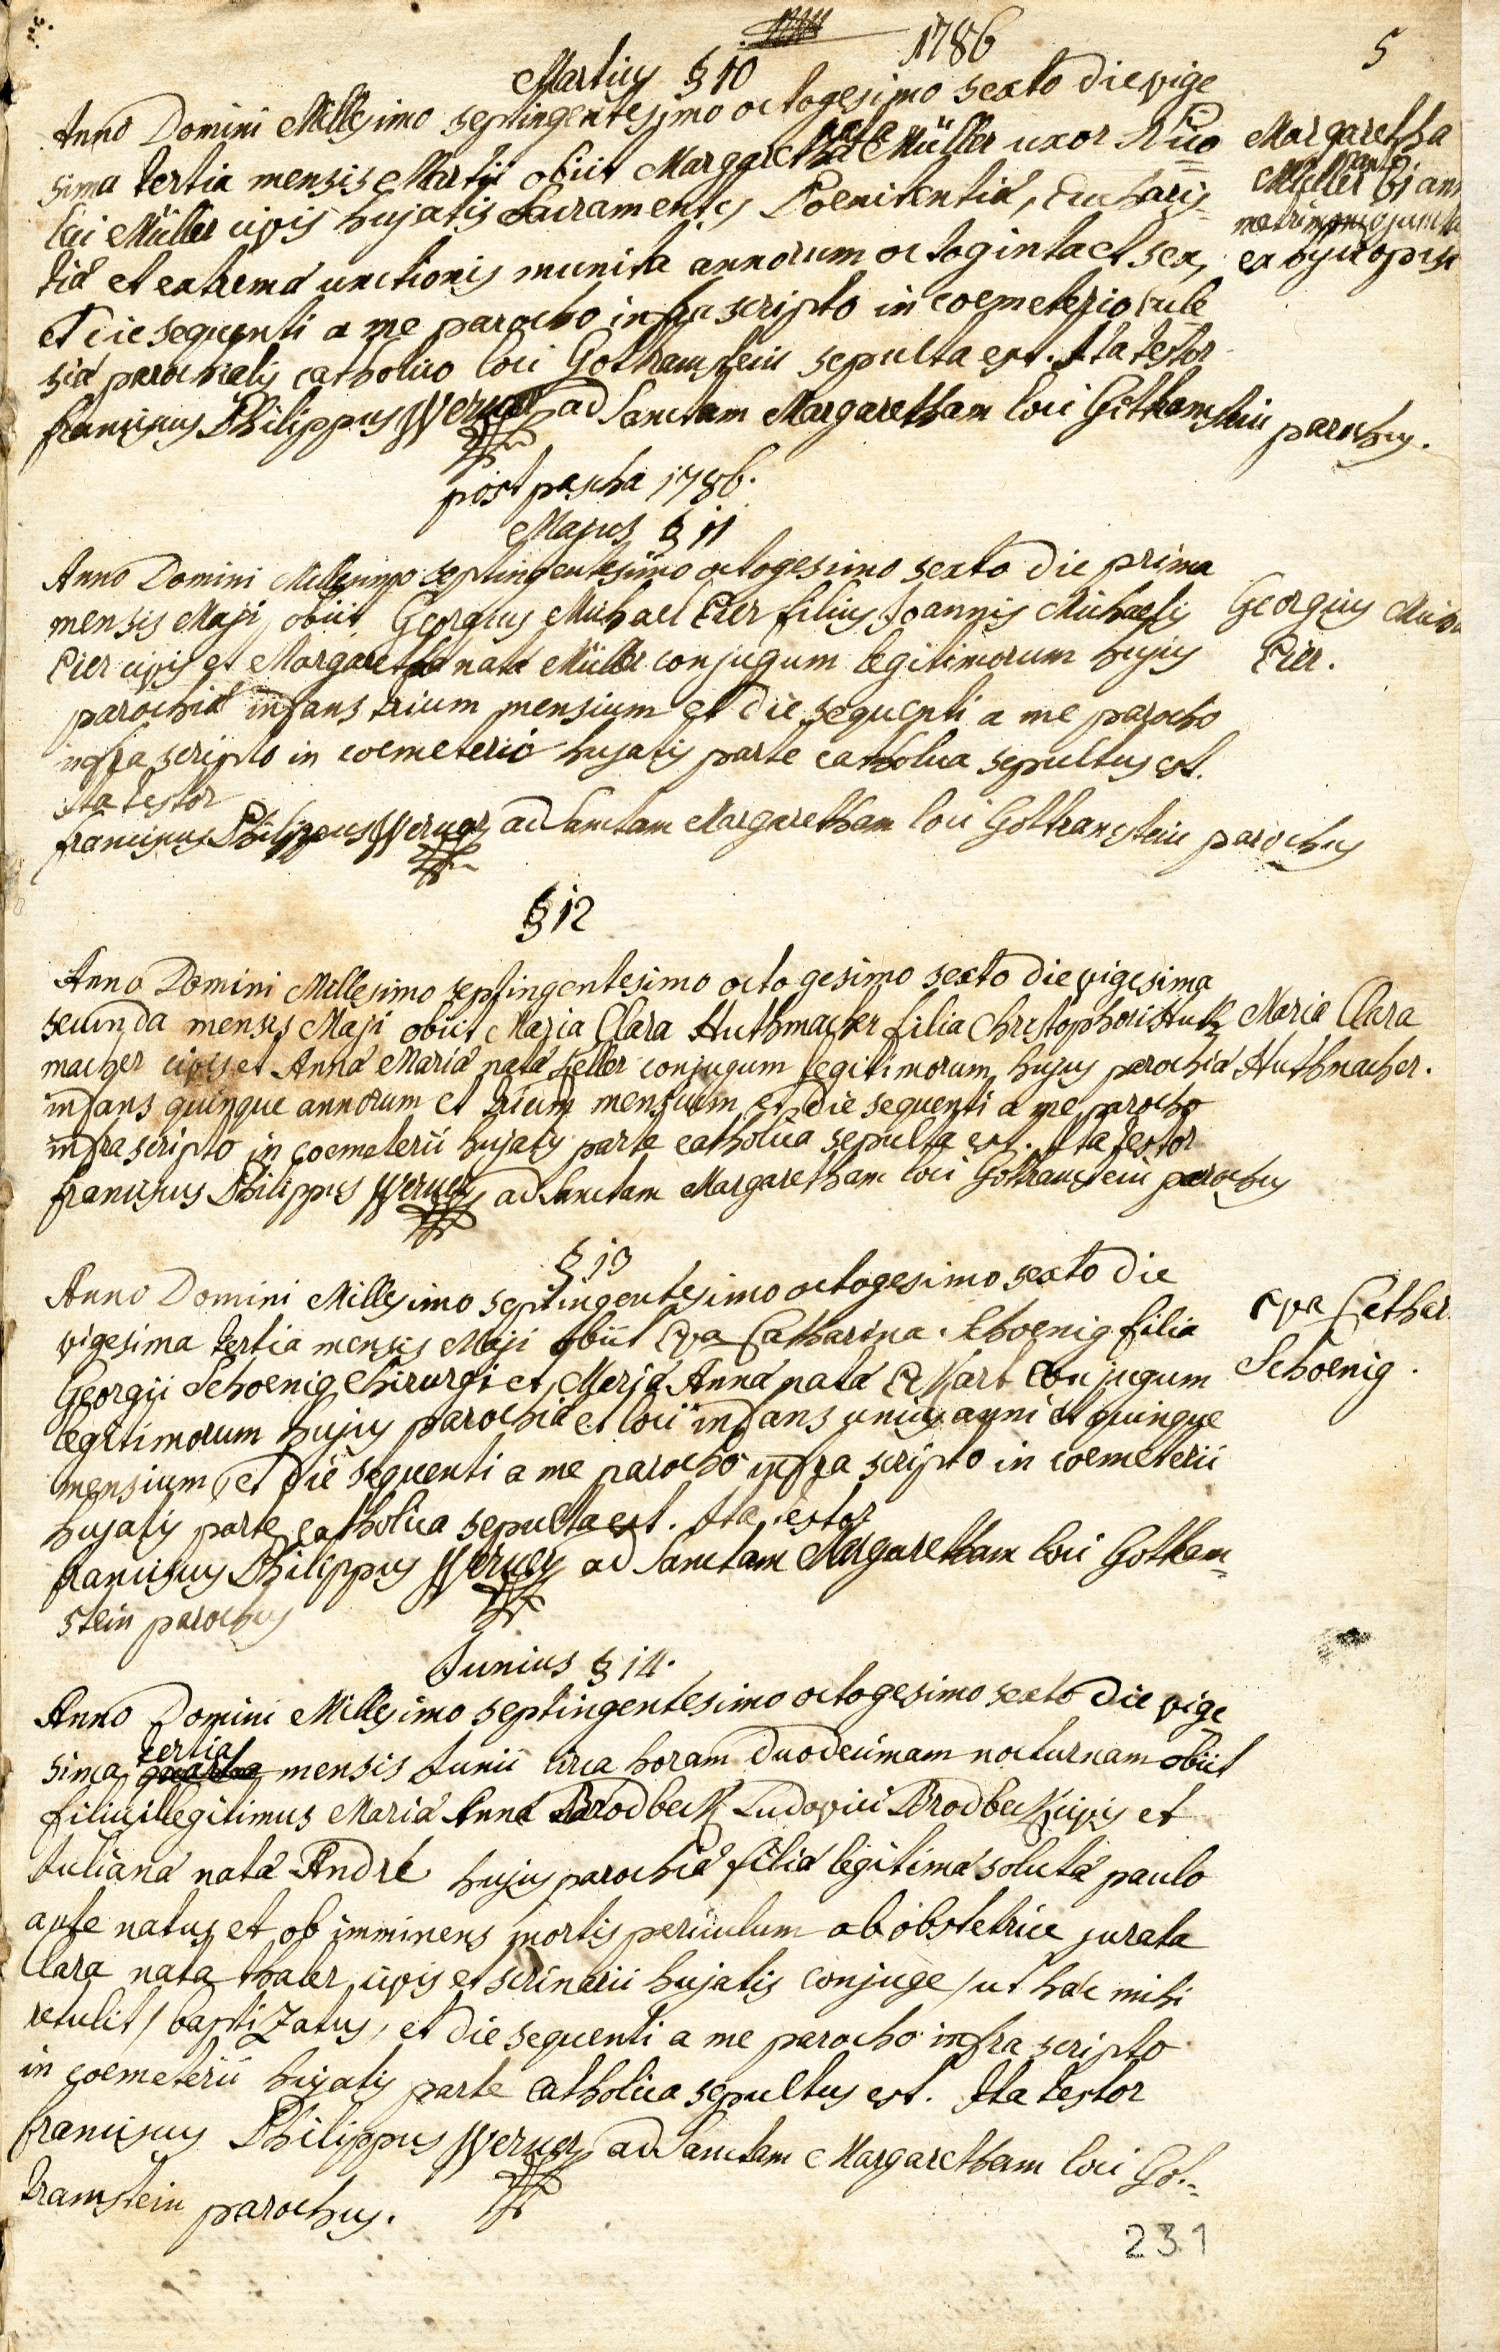 1786
5
Martius § 10
Anno Domini Millesimo septingentesimo octogesimo sexto die vige
sima tertia mensis Martii obiit Margaretha nata Müller uxor Nico
lai Müller civis hujatis Sacramentis Poenitentiæ, Eucharis=
tiæ et extremæ unctionis munita annorum octoginta et sex,
et die sequenti a me parocho infra scripto in coemeterio
siæ parochialis catholico loci Gottramstein sepulta est. Ita testor
Franciscus Philippus Werner ad Sanctam Margaretham loci Gottramstein parochus.
Margaretha
Müller
post pascha 1786.
Majus § 11
Anno Domini Millesimo septingentesimo octogesimo sexto die prima
mensis Maji obiit Georgius Michael Eier filius Joannis Michaelis
Eier civis et Margarethæ natæ Müller conjugum legitimorum hujus
parochiæ infans trium mensium et die sequenti a me parocho
infra scripto in coemeterio hujatis parte catholica sepultus est.
Ita testor
Franciscus Philippus Werner ad Sanctam Margaretham loci Gottramstein parochus
Georgius Mich
Eier.
§ 12
Anno Domini Millesimo septingentesimo octogesimo sexto die vigesima
secunda mensis Maji obiit Maria Clara Huthmacher filia Christophori Huth
macher civis et Annæ Mariæ natæ Keller conjugum legitimorum hujus parochiæ
infans quinque annorum et trium mensium et die sequenti a me parocho
infra scripto in coemeterii hujatis parte catholica sepulta est. Ita testor
Franciscus Philippus Werner ad Sanctam Margaretham loci Gottramstein parochus
Maria Clara
Huthmacher.
§ 13
Anno Domini Millesimo septingentesimo octogesimo sexto die
vigesima tertia mensis Maji obiit Eva Catharina Schoenig filia
Georgii Schoenig Chirurgi et Mariæ Annæ natæ conjugum
legitimorum hujus parochiæ et loci infans unius anni et quinque
mensium, et die sequenti a me parocho infra scripto in coemeterii
hujatis parte catholica sepulta est. Ita testor
Franciscus Philippus Werner ad Sanctam Margaretham loci Gottram=
stein parochus
Eva Cathar.
Schoenig.
Junius § 14.
Anno Domini Millesimo septingentesimo octogesimo sexto die vige
sima tertia mensis Junii circa horam duodecimam nocturnam obiit
filius illegitimus Mariæ Annæ Brodbeck Ludovici Brodbeck civis et
Julianæ natæ André hujus parochiæ filiæ legitimæ solutæ paulo
ante natus et ob imminens mortis periculum ab obstetrice jurata
Clara nata civis et scrinarii hujatis conjuge / ut hæc mihi
retulit / baptizatus, et die sequenti a me parocho infra scripto
in coemeterii hujatis parte catholica sepultus est. Ita testor
Franciscus Philippus Werner ad Sanctam Margaretham loci Got=
tramstein parochus.
231